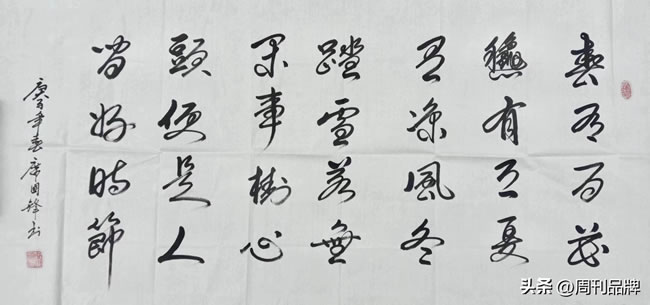 春有百花
龝有月夏
有凉風冬
踏雪若無
閑事樹心
頭便是人
间好時節
庚子年春席国锋书
头条 @周刊品牌